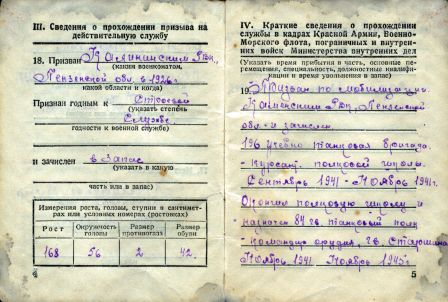 III. Сведения о прохождении призыва на
действительную службу
18. Призван Калининским РВК,
(каким военкоматом,
Пензенской обл. в 1926г.
какой области и когда)
Признан годным к Строевой
(указать степень
Службе
годности к военной службе)
и зачислен в запас
(указать в какую
часть или в запас)
Измерения роста, головы, ступни в сантимет-
рах или условных номерах (ростовках)
Рост Окружность головы Размер противогаза Размер обуви
168 56 2 42.
4
IV. Краткие сведения о прохождении
службы в кадрах Красной Армии, Военно-
Морского флота, пограничных и внутрен-
них войск Министерства внутренних дел
(Указать время прибытия в часть, основные пе-
ремещения, специальность, должностные квалифи-
кации и время увольнения в запас)
19. Призван по мобилизации
Каменским РВК, Пензенской
обл. и зачислен
196 учебно танковая бригада.
- курсант полковой школы.
Сентябрь 1941 - Ноябрь 1941г.
Окончил полковую школу и
назначен 84 гв. танковый полк
- командир орудия, гв. Старшина
Ноябрь 1941 Ноябрь 1945г.
5